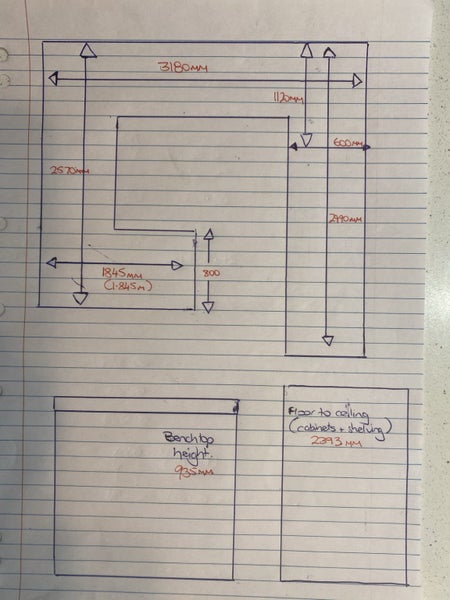 3180MM
1120MM
600MM
2570MM
2990MM
1845MM
(1.845M)
800
Floor to ceiling
(cabinets + shelving)
2393 MM
Benchtop
height.
935MM